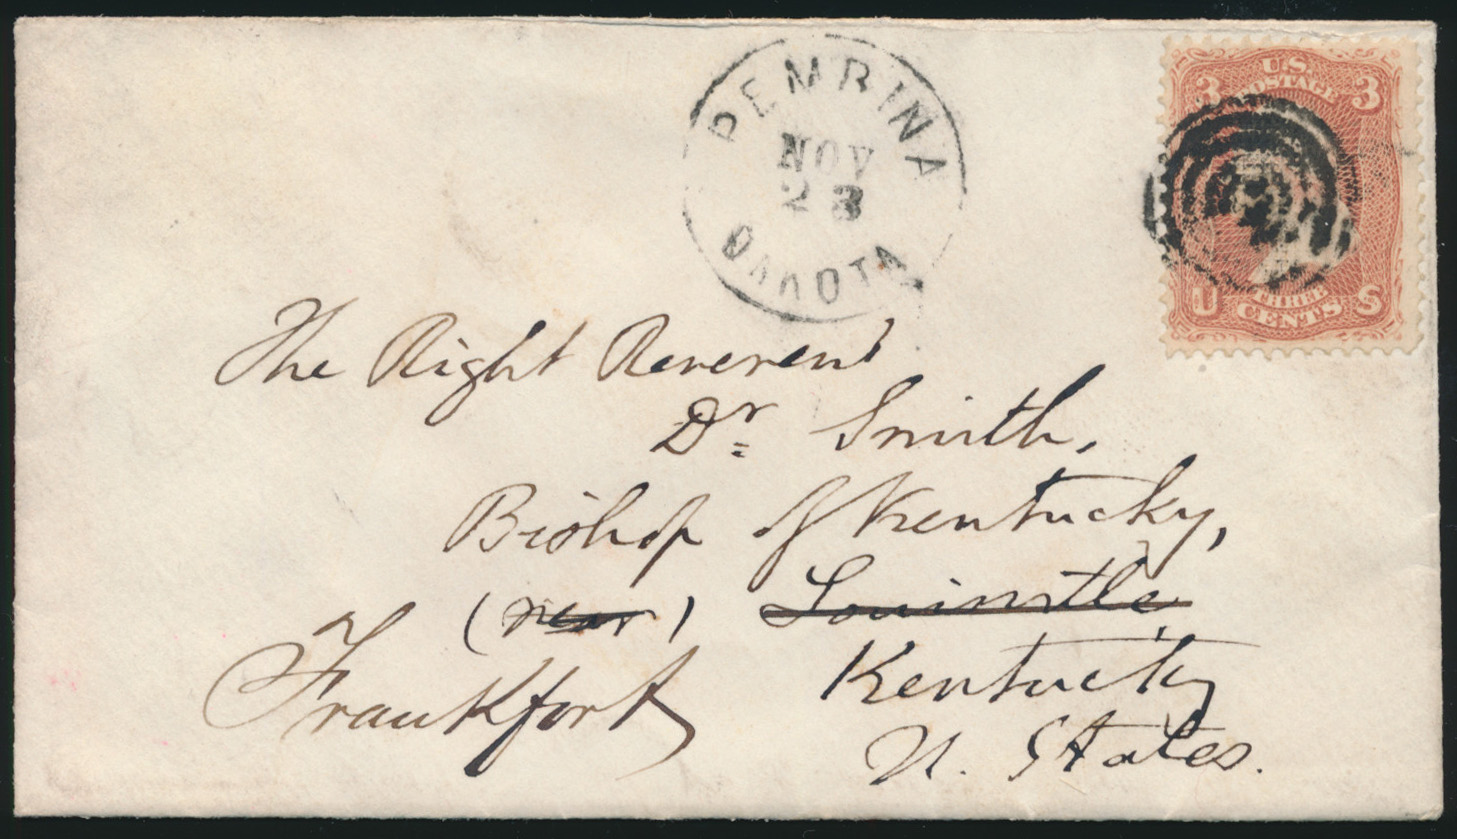 PEMBINA
NOV
23
DAKOTA
3 U.S. POSTAGE 3
U THREE CENTS S
The Right Reverend
Dr. Smith,
Bishop of Kentucky,
(near) Louisville,
Frankfort Kentucky
U. States.